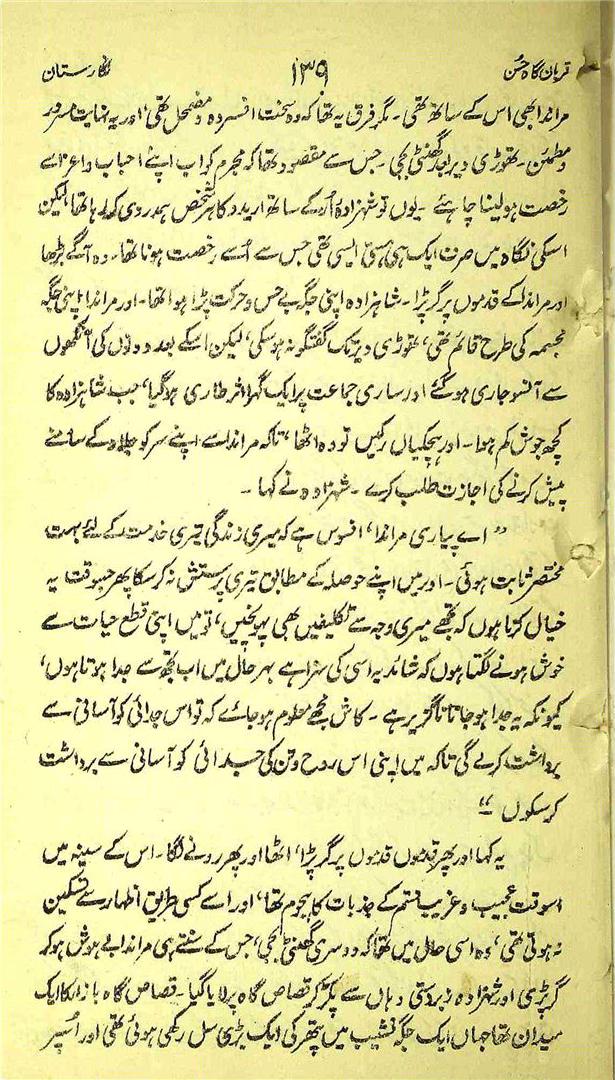 قربان گاہ حُسن ۱۳۹ نگارستان
مراندا بھی اس کے ساتھ تھی۔ مگر فرق یہ تھا کہ وہ سخت افسردہ و مضمحل تھی، اور یہ نہایت مسرور
و مطمئن۔ تھوڑی دیر بعد گھنٹی بجی۔ جس سے مقصود تھا کہ مجرم کو اب اپنے احباب و اعزا سے
رخصت ہو لینا چاہئے۔ یوں تو شہزادہ آرُ کے ساتھ اریدو کا ہر شخص ہمدردی کر رہا تھا، لیکن
اسکی نگاہ میں صرف ایک ہی ہستی ایسی تھی جس سے اُسے رخصت ہونا تھا۔ وہ آگے بڑھا
اور مراندا کے قدموں پر گر پڑا۔ شاہزادہ اپنی جگہ بے حس و حرکت پڑا ہوا تھا۔ اور مراندا اپنی جگہ
مجسمہ کی طرح قائم تھی، تھوڑی دیر تک گفتگو نہ ہو سکی، لیکن اسکے بعد دونوں کی آنکھوں
سے آنسو جاری ہو گئے اور ساری جماعت پر ایک گہرا اثر طاری ہو گیا، جب شاہزادہ کا
کچھ جوش کم ہوا۔ اور ہچکیاں رکیں تو وہ اٹھا، تاکہ مراندا سے اپنے سر کو جلاد کے سامنے
پیش کرنے کی اجازت طلب کرے۔ شہزادہ نے کہا۔
”اے پیاری مراندا، افسوس ہے کہ میری زندگی تیری خدمت کے لئے بہت
مختصر ثابت ہوئی۔ اور میں اپنے حوصلہ کے مطابق تیری پرستش نہ کر سکا پھر جسوقت یہ
خیال کرتا ہوں کہ تجھے میری وجہ سے تکلیفیں بھی پہونچیں، تو میں اپنی قطع حیات سے
خوش ہونے لگتا ہوں کہ شائد یہ اسی کی سزا ہے بہر حال میں اب تجھ سے جدا ہوتا ہوں،
کیونکہ یہ جدا ہو جانا ناگزیر ہے۔ کاش مجھے معلوم ہو جائے کہ تو اس جدائی کو آسانی سے
برداشت کر لے گی تاکہ میں اپنی اس روح و تن کی جدائی کو آسانی سے برداشت
کر سکوں“
یہ کہا اور پھر قدموں قدموں پر گر پڑا، اٹھا اور پھر رونے لگا۔ اس کے سینہ میں
اسوقت عجیب و غریب قسم کے جذبات کا ہجوم تھا، اور اسے کسی طریق اظہار سے تسکین
نہ ہوتی تھی، وہ اسی حال میں تھا کہ دوسری گھنٹی بجی، جس کے سنتے ہی مراندا بے ہوش ہو کر
گر پڑی اور شہزادہ زبردستی وہاں سے پکڑ کر قصاص گاہ پر لایا گیا۔ قصاص گاہ بازار کا ایک
میدان تھا جہاں ایک جگہ نشیب میں پتھر کی ایک بڑی سل رکھی ہوئی تھی اور اُسپر